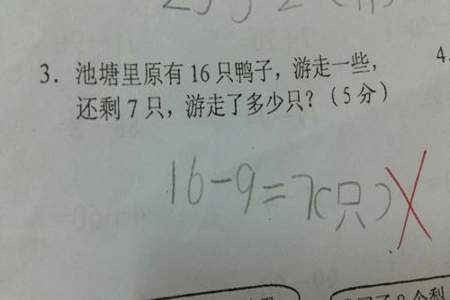 3. 池塘里原有 16 只鸭子，游走一些，
还剩 7 只，游走了多少只？（5 分）
4.
16-9=7(只)